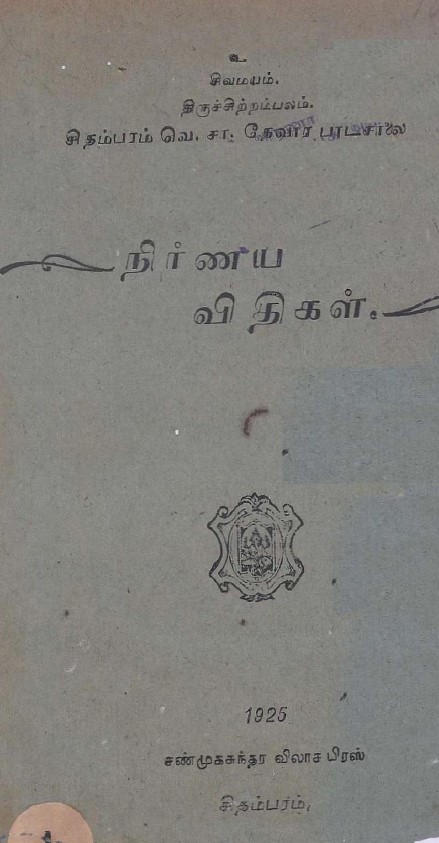 உ
சிவமயம்.
திருச்சிற்றம்பலம்.
சிதம்பரம் வெ. சா. தேவார பாடசாலை
நிர்ணய
விதிகள்.
1925
சண்முகசுந்தர விலாச பிரஸ்
சிதம்பரம்.